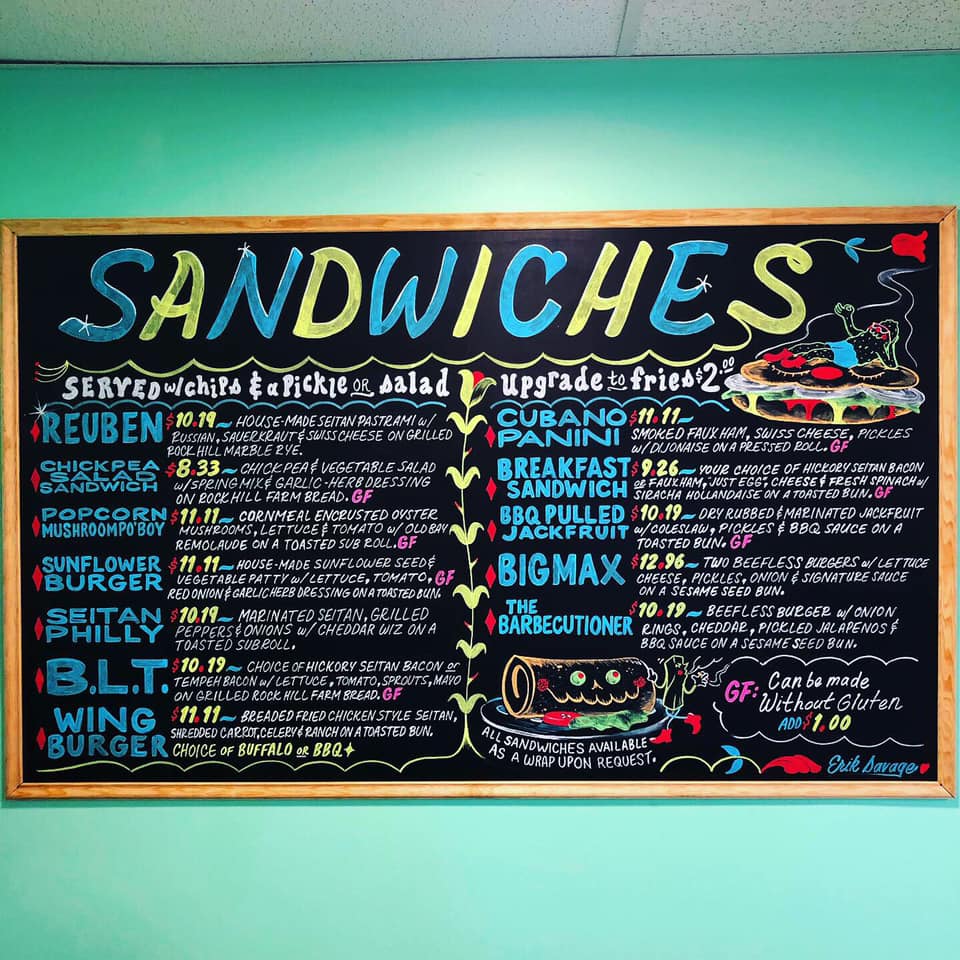 SANDWICHES
SERVED w/chips & a Pickle OR salad
REUBEN $10.19~ HOUSE-MADE SEITAN PASTRAMI W/
RUSSIAN, SAUERKRAUT & SWISS CHEESE ON GRILLED
ROCK HILL MARBLE RYE.
CHICKPEA SALAD SANDWICH $8.33~ CHICKPEA & VEGETABLE SALAD
W/SPRING MIX & GARLIC-HERB DRESSING
ON ROCK HILL FARM BREAD. GF
POPCORN MUSHROOM PO'BOY $11.11~ CORNMEAL ENCRUSTED OYSTER
MUSHROOMS, LETTUCE & TOMATO W/ OLD BAY
REMOLAUDE ON A TOASTED SUB ROLL. GF
SUNFLOWER BURGER $11.11~ HOUSE-MADE SUNFLOWER SEED &
VEGETABLE PATTY W/ LETTUCE, TOMATO, GF
RED ONION & GARLIC HERB DRESSING ON A TOASTED BUN.
SEITAN PHILLY $10.19~ MARINATED SEITAN, GRILLED
PEPPERS & ONIONS W/ CHEDDAR WIZ ON A
TOASTED SUB ROLL.
B.L.T. $10.19~ CHOICE OF HICKORY SEITAN BACON or
TEMPEH BACON W/ LETTUCE, TOMATO, SPROUTS, MAYO
ON GRILLED ROCK HILL FARM BREAD. GF
WING BURGER $11.11~ BREADED FRIED CHICKEN STYLE SEITAN,
SHREDDED CARROT, CELERY & RANCH ON A TOASTED BUN.
CHOICE OF BUFFALO OR BBQ
upgrade to fries $2.00
CUBANO PANINI $11.11~
SMOKED FAUX HAM, SWISS CHEESE, PICKLES
W/ DIJONAISE ON A PRESSED ROLL. GF
BREAKFAST SANDWICH $9.26~ YOUR CHOICE OF HICKORY SEITAN BACON
OR FAUX HAM, "JUST EGG", CHEESE & FRESH SPINACH W/
SIRACHA HOLLANDAISE ON A TOASTED BUN. GF
BBQ PULLED JACKFRUIT $10.19~ DRY RUBBED & MARINATED JACKFRUIT
W/ COLESLAW, PICKLES & BBQ SAUCE ON A
TOASTED BUN. GF
BIG MAX $12.96~ TWO BEEFLESS BURGERS W/ LETTUCE
CHEESE, PICKLES, ONION & SIGNATURE SAUCE
ON A SESAME SEED BUN.
THE BARBECUTIONER $10.19~ BEEFLESS BURGER W/ ONION
RINGS, CHEDDAR, PICKLED JALAPENOS &
BBQ SAUCE ON A SESAME SEED BUN.
ALL SANDWICHES AVAILABLE
AS A WRAP UPON REQUEST.
GF: Can be made
Without Gluten
ADD $1.00
Erik Savage